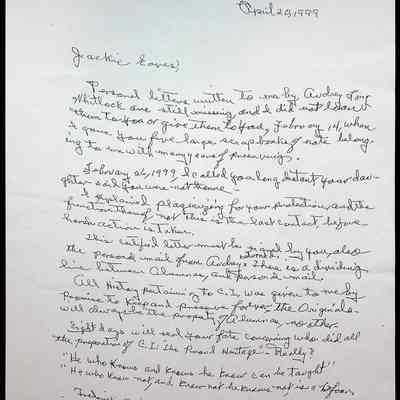 April 20, 1999
Jackie Eaves,
Personal letters written to me by Audrey Long
Whitlock are still missing, and I did not loan
them to you or give them to you, February 14, when
I gave you five large scrapbooks of note belong
ing to me with many years of preserving.
February 26, 1999, I called you long distant your dau
ghter said you were not home
I explained plagiarizing for your protection, and the
function though not this is the last contact, before
harsh action is taken.
This certified letter must be signed by you, also
the personal mail from Audrey returned. There is a dividing
line between Alumnae, and personal mail
All History pertaining to C.I. was given to me by
Promise to keep and preserve forever, the Originals
will always be the property of Alumnae, no other.
Eight days will seal your fate concerning who did all
the preparation of C.I. the Proud Heritage - Really?
"He who knows and knows he knew can be taught"
"He who knew not and knew not he knows not is a